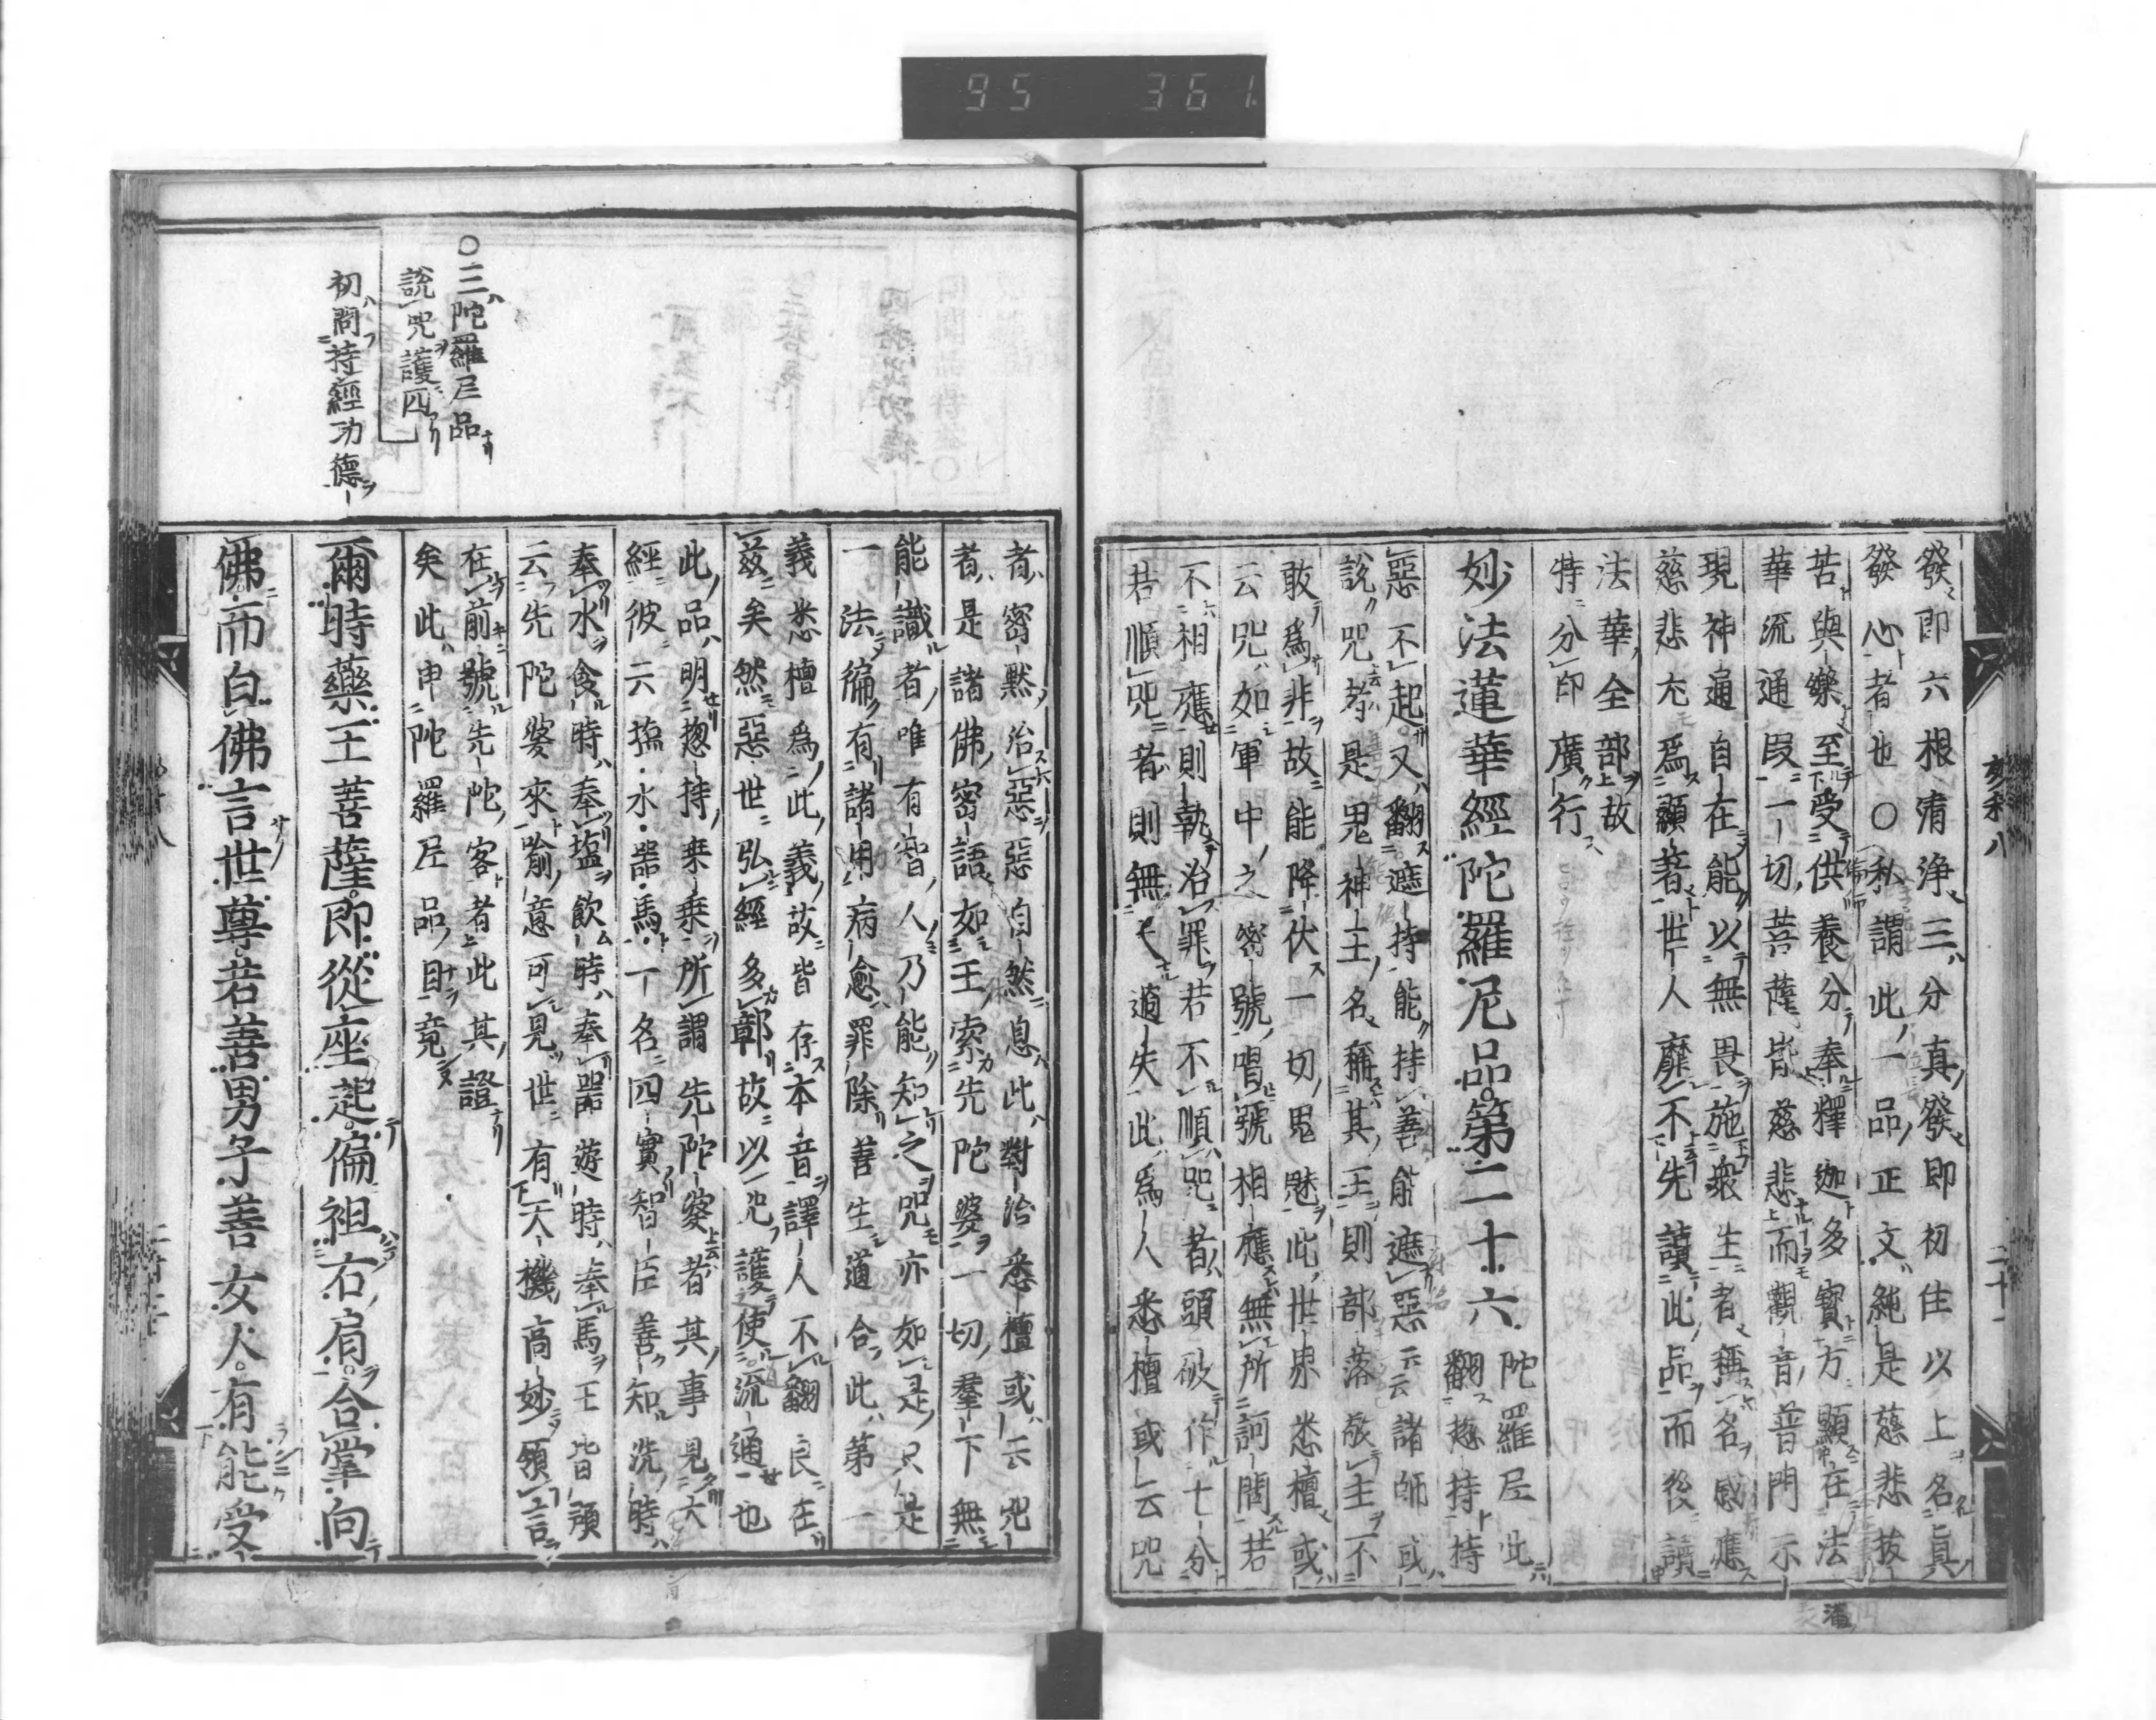 95 361
發即六根清浄三分真發即初住以上名真
發心者也〇私謂此一品正文純是慈悲拔
苦與樂至受供養分奉釋迦多寶十方顯在法
華流通段一切菩薩皆慈悲而觀音普門示
現神通自在能以無畏施衆生者稱名感應
慈悲尤爲顯著世人靡不先讀此品而後讀
法華全部故
特分印廣行
妙法蓮華經陀羅尼品第二十六
陀羅尼此
翻揔持持
惡不起又翻遮持能持善能遮惡云云諸師或
說咒者是鬼神王名稱其王則部落敬主不
敢爲非故能降伏一切鬼魅此世界悉檀或
云咒如軍中之密號唱號相應無所訶問若
不相應則執治罪若不順咒者頭破作七分
若順咒者則無失道失此爲人悉檀或云咒
者密默治惡惡自然息此對治悉檀或云咒
者是諸佛密語如王索先陀婆一切羣下無
能識者唯有智人乃能知之咒亦如是只是
一法徧有諸用病愈罪除善生道合此第一
義悉檀爲此義故皆存本音譯人不翻良在
茲矣然惡世弘經多鄣故以咒護使流通也
此品明揔持乗乗所謂先陀婆者其事見大
經彼云塩水器馬一名四實智臣善知洗時
奉水食時奉塩飲時奉器遊時奉馬王皆頌
云先陀婆來喻意可見世有大機高妙領言
在前號先陀客者此其證
矣此申陀羅尼品目竟
〇三陀羅尼品
說咒護四
初問持經功德
爾時藥王菩薩即從座起偏袒右肩合掌向
佛而白佛言世尊若善男子善女人有能受